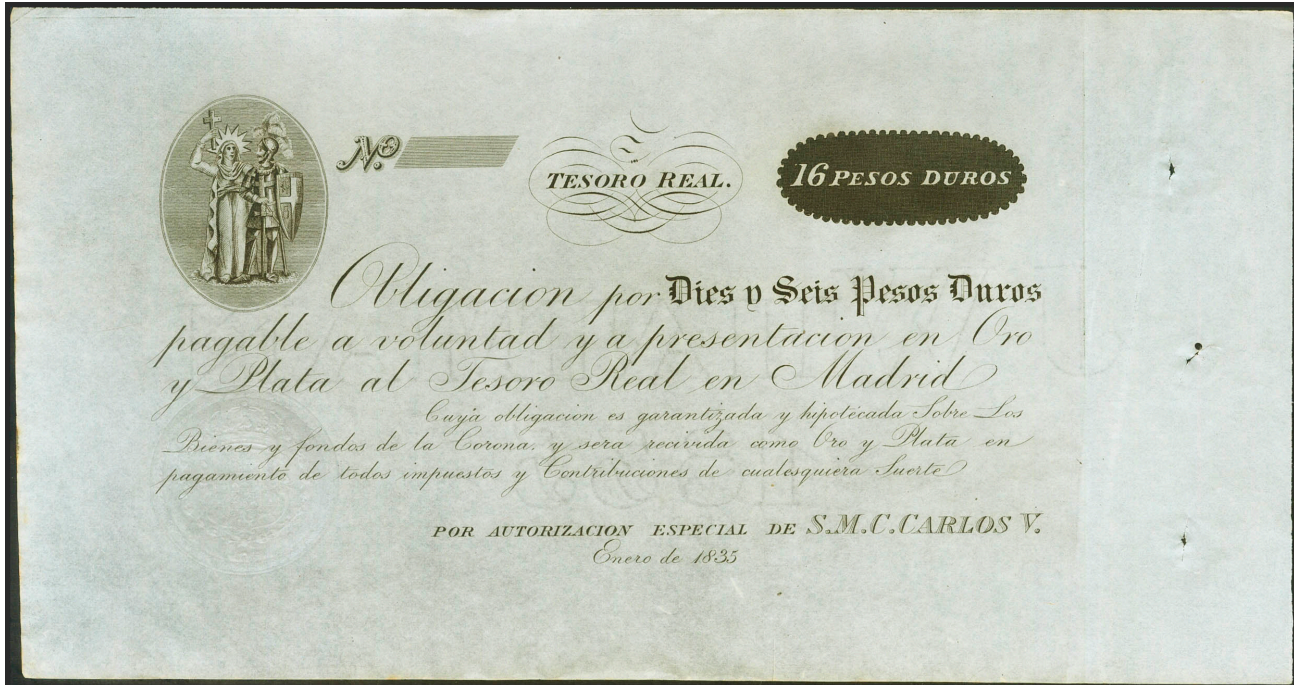 Nº
TESORO REAL.
16 PESOS DUROS
Obligacion por Dies y Seis Pesos Duros
pagable a voluntad y a presentacion en Oro
y Plata al Tesoro Real en Madrid
Cuya obligacion es garantizada y hipotécada Sobre Los
Bienes y fondos de la Corona, y sera recivida como Oro y Plata en
pagamiento de todos impuestos y Contribuciones de cualesquiera Suerte
POR AUTORIZACION ESPECIAL DE S.M.C. CARLOS V.
Enero de 1835